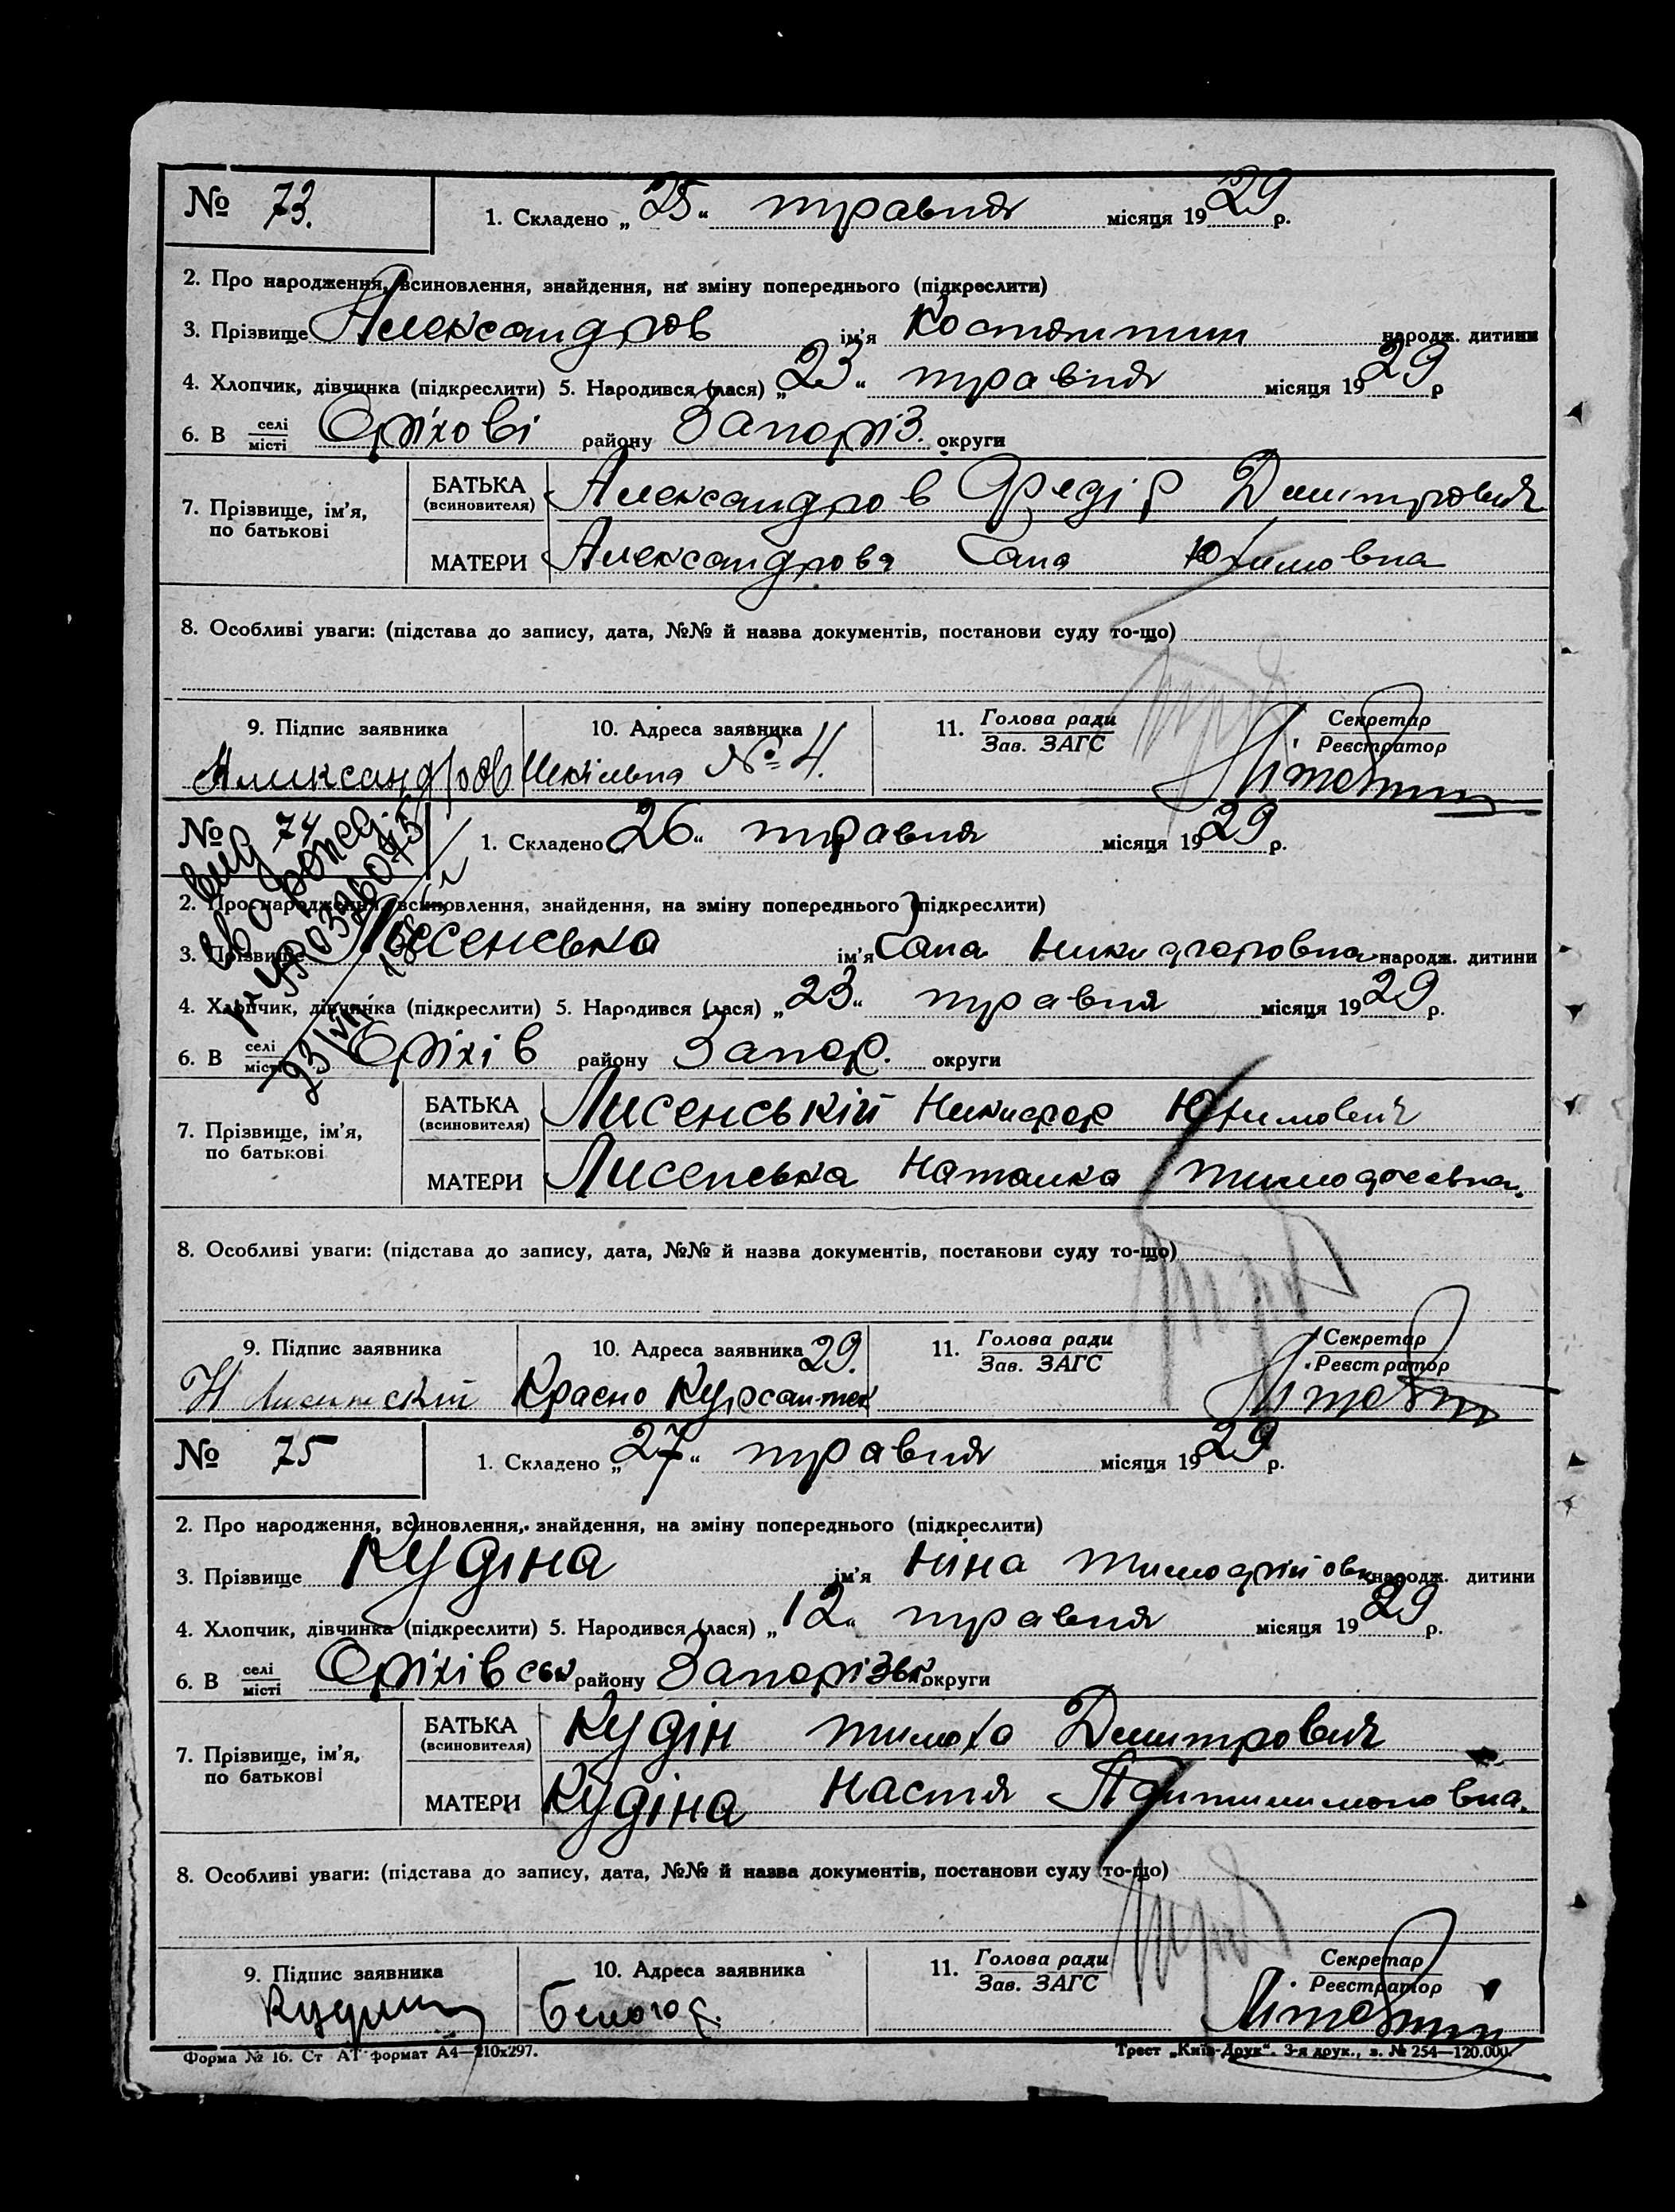 № 73. 1. Складено „25“ травня місяця 1929 р.
2. Про народження, всиновлення, знайдення, на зміну попереднього (підкреслити)
3. Прізвище Александров ім'я Костянтин народж. дитини
4. Хлопчик, дівчинка (підкреслити) 5. Народився (лася) „23“ травня місяця 1929 р
6. В селі/місті Оріхові району Запоріз. округи
7. Прізвище, ім'я, по батькові
БАТЬКА (всиновителя) Александров Федір Дмитрович
МАТЕРИ Александрова Сана Юхимовна
8. Особливі уваги: (підстава до запису, дата, №№ й назва документів, постанови суду то-що)
9. Підпис заявника 10. Адреса заявника 11. Голова ради/Зав. ЗАГС Секретар/Реєстратор
Александров Шкільна № 4.
№ 74 1. Складено „26“ травня місяця 1929 р.
2. Про народження, всиновлення, знайдення, на зміну попереднього (підкреслити)
3. Прізвище Лисенська ім'я Сана Никифоровна народж. дитини
4. Хлопчик, дівчинка (підкреслити) 5. Народився (лася) „23“ травня місяця 1929 р.
6. В селі/місті Оріхів району Запор. округи
7. Прізвище, ім'я, по батькові
БАТЬКА (всиновителя) Лисенській Никифор Юхимович
МАТЕРИ Лисенська Наталка Тимофеевна.
8. Особливі уваги: (підстава до запису, дата, №№ й назва документів, постанови суду то-що)
9. Підпис заявника 10. Адреса заявника 29. 11. Голова ради/Зав. ЗАГС Секретар/Реєстратор
Н Красно Курсантск
№ 75 1. Складено „27“ травня місяця 1929 р.
2. Про народження, всиновлення, знайдення, на зміну попереднього (підкреслити)
3. Прізвище Кудіна ім'я Ніна Тимофійовн народж. дитини
4. Хлопчик, дівчинка (підкреслити) 5. Народився (лася) „12“ травня місяця 1929 р.
6. В селі/місті Оріхівськ району Запорізьк округи
7. Прізвище, ім'я, по батькові
БАТЬКА (всиновителя) Кудін Тимоха Дмитрович
МАТЕРИ Кудіна Настя
8. Особливі уваги: (підстава до запису, дата, №№ й назва документів, постанови суду то-що)
9. Підпис заявника 10. Адреса заявника 11. Голова ради/Зав. ЗАГС Секретар/Реєстратор
Кудин
Форма № 16. Ст АТ формат А4—210х297. Трест „Київ-Друк“. 3-я друк., з. № 254—120.000.